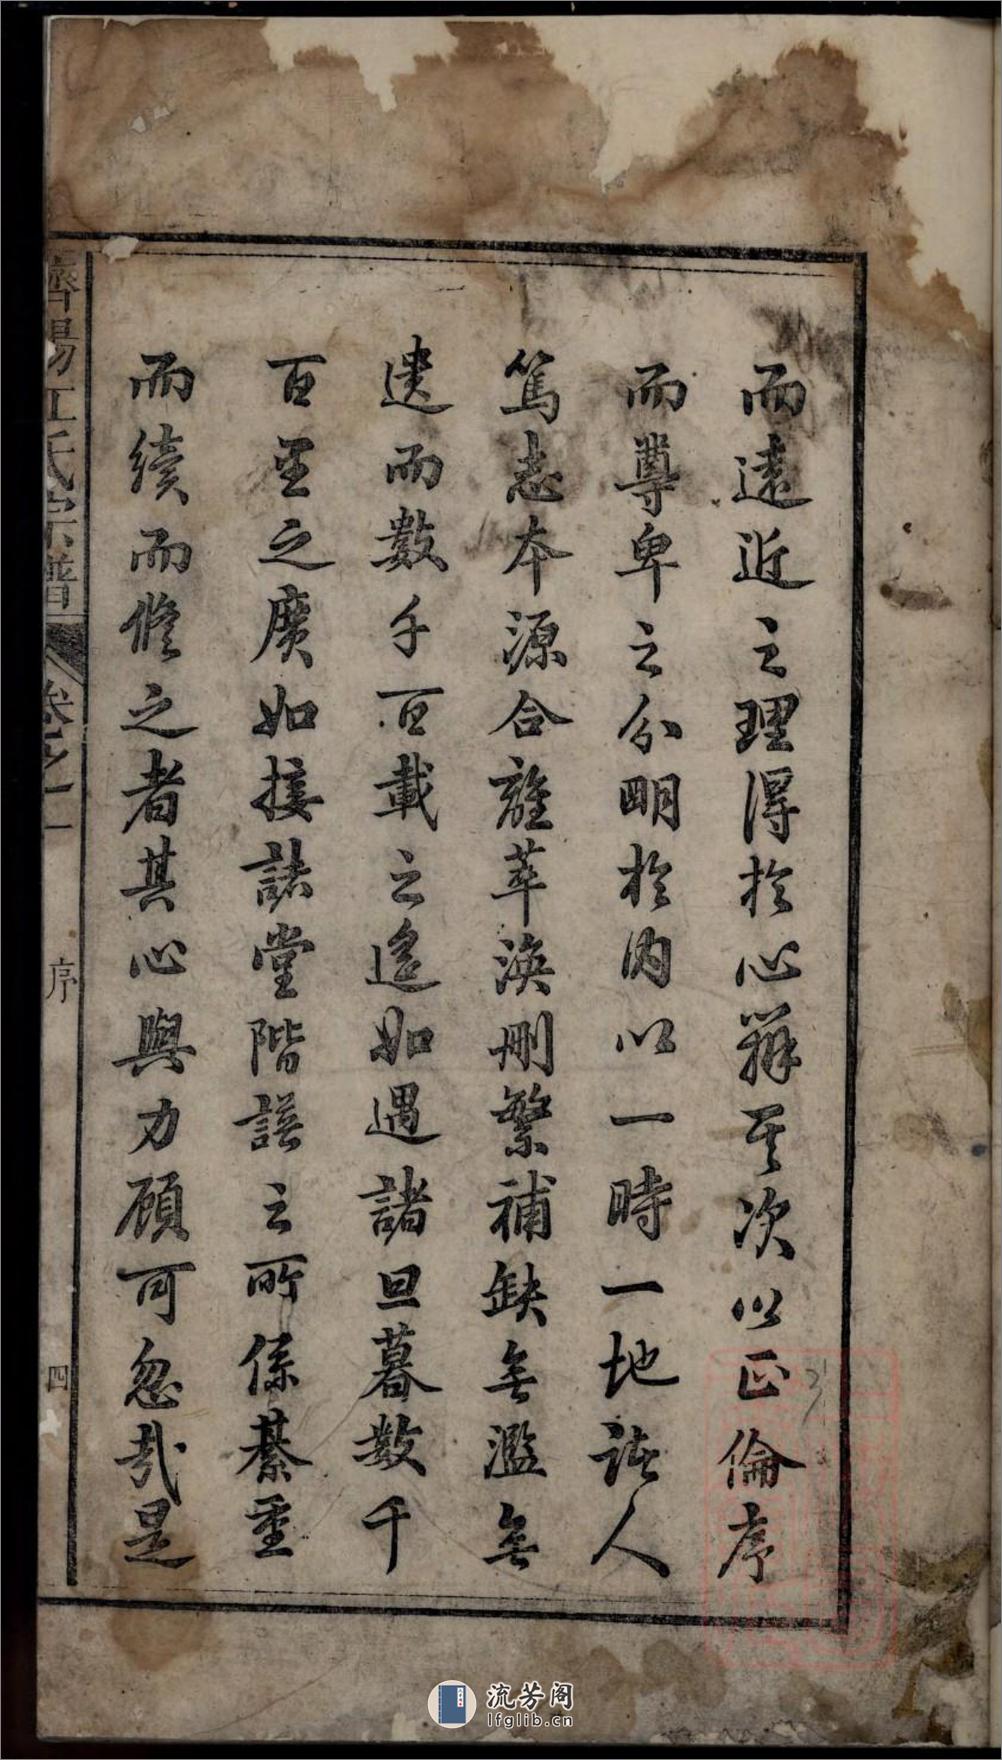 而遠近之理得於心辨其次以正倫序
而尊卑之分明於內以一時一地諸人
篤志本源合離萃渙刪繁補缺無濫無
遺而數千百載之遙如遇諸旦暮數千
百里之廣如接諸堂階譜之所係綦重
而續而修之者其心與力顧可忽哉是
濟陽江氏宗譜
卷之一
序
四
流芳阁
lfglib.cn